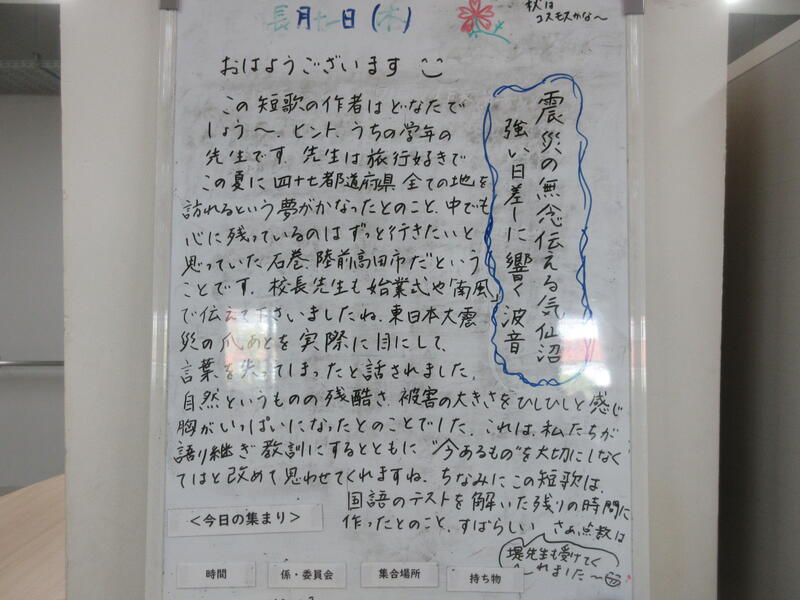 長月十一日(木)
秋は
コスモスかな〜
おはようございます
震災の無念伝える気仙沼
強い日差しに響く波音
この短歌の作者はどなたで
しょう〜。ヒント、うちの学年の
先生です。先生は旅行好きで
この夏に四十七都道府県全ての地を
訪れるという夢がかなったとのこと。中でも
心に残っているのはずっと行きたいと
思っていた石巻、陸前高田市だという
ことです。校長先生も始業式や「南風」
で伝えて下さいましたね。東日本大震
災の爪あとを実際に目にして、
言葉を失ってしまったと話されました。
自然というものの残酷さ、被害の大きさをひしひしと感じ
胸がいっぱいになったとのことでした。これは、私たちが
語り継ぎ教訓にするとともに"今あるもの"を大切にしなく
てはと改めて思わせてくれますね。ちなみにこの短歌は、
国語のテストを解いた残りの時間に
作ったとのこと。すばらしい さぁ、点数は
堤先生も受けてく
れました〜
＜今日の集まり＞
時間 係・委員会 集合場所 持ち物